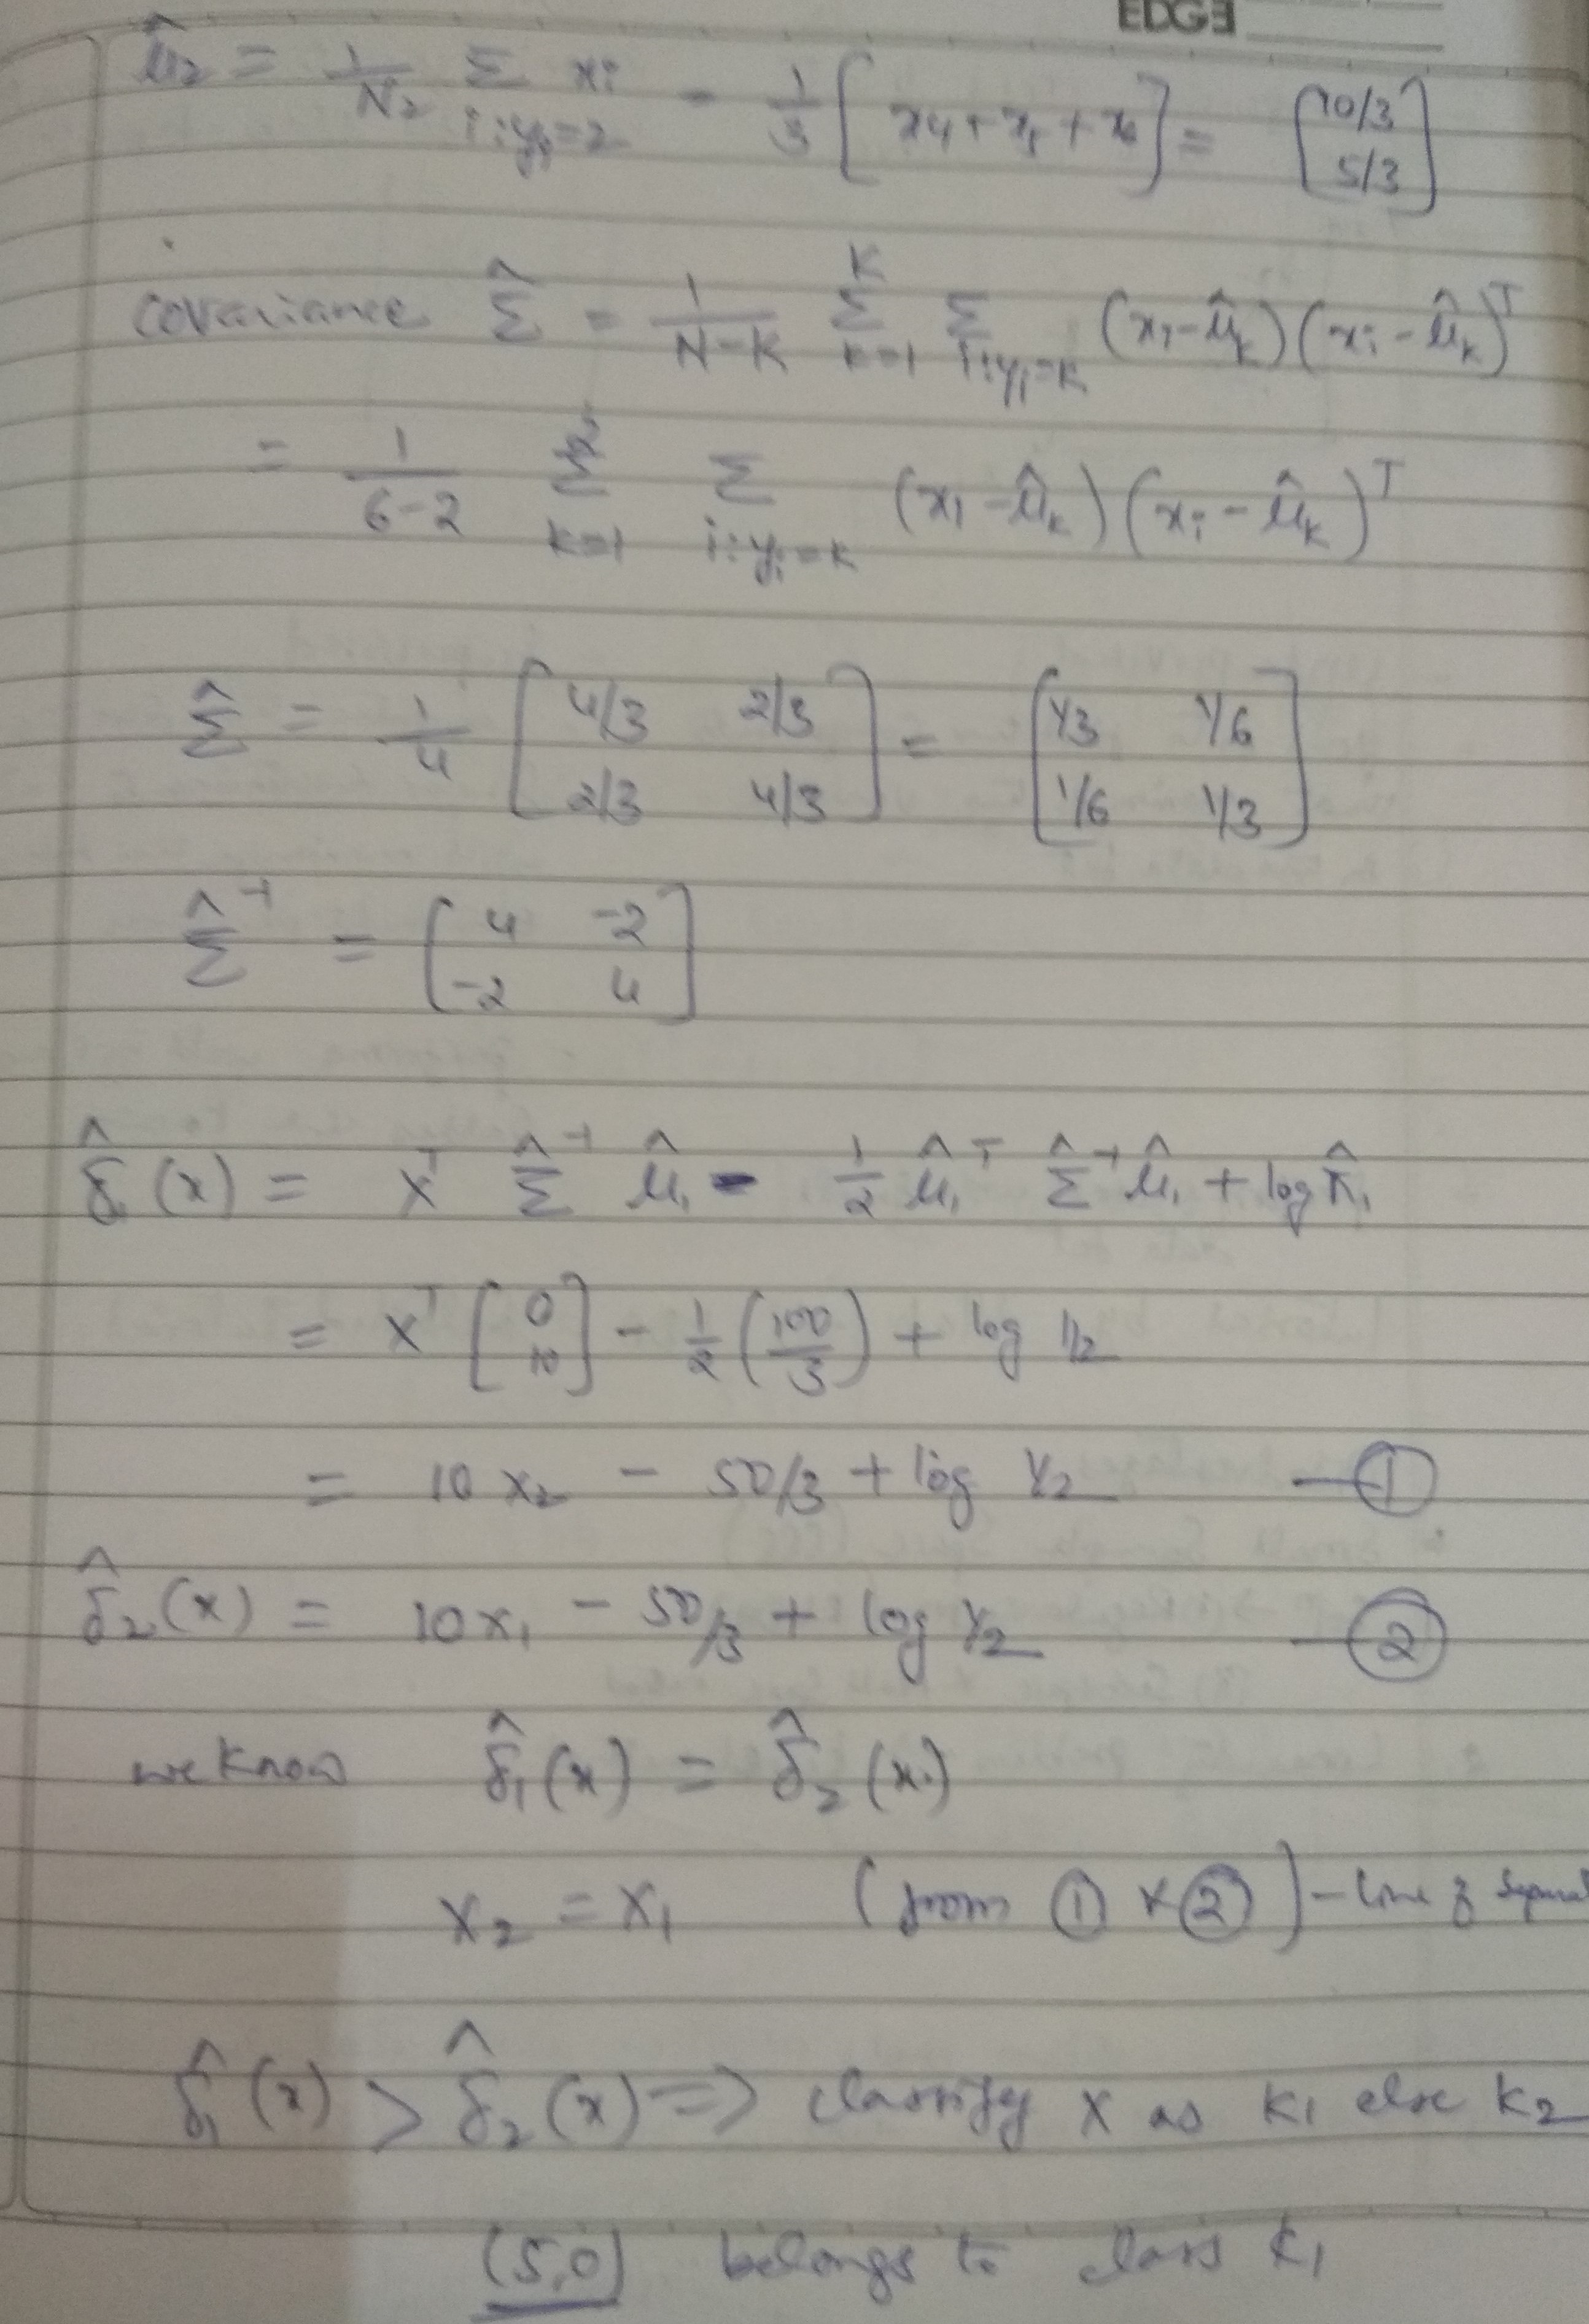 EDGE
μ̂₂ = 1/N₂ Σ_{i:yᵢ=2} xᵢ = 1/3 [x₄ + x₅ + x₆] = [10/3; 5/3]
covariance Σ̂ = 1/(N-K) Σ_{k=1}^{K} Σ_{i:yᵢ=k} (xᵢ - μ̂_k)(xᵢ - μ̂_k)ᵀ
= 1/(6-2) Σ_{k=1}^{2} Σ_{i:yᵢ=k} (xᵢ - μ̂_k)(xᵢ - μ̂_k)ᵀ
Σ̂ = 1/4 [4/3 2/3; 2/3 4/3] = [1/3 1/6; 1/6 1/3]
Σ̂⁻¹ = [4 -2; -2 4]
δ̂₁(x) = xᵀ Σ̂⁻¹ μ̂₁ - 1/2 μ̂₁ᵀ Σ̂⁻¹ μ̂₁ + log π̂₁
= xᵀ [0; 10] - 1/2 (100/3) + log 1/2
= 10 x₂ - 50/3 + log 1/2 — ①
δ̂₂(x) = 10x₁ - 50/3 + log 1/2 — ②
we know δ̂₁(x) = δ̂₂(x)
x₂ = x₁ (from ① & ②) - line of
δ̂₁(x) > δ̂₂(x) => classify x as k₁ else k₂
(5,0) belongs to class k₁